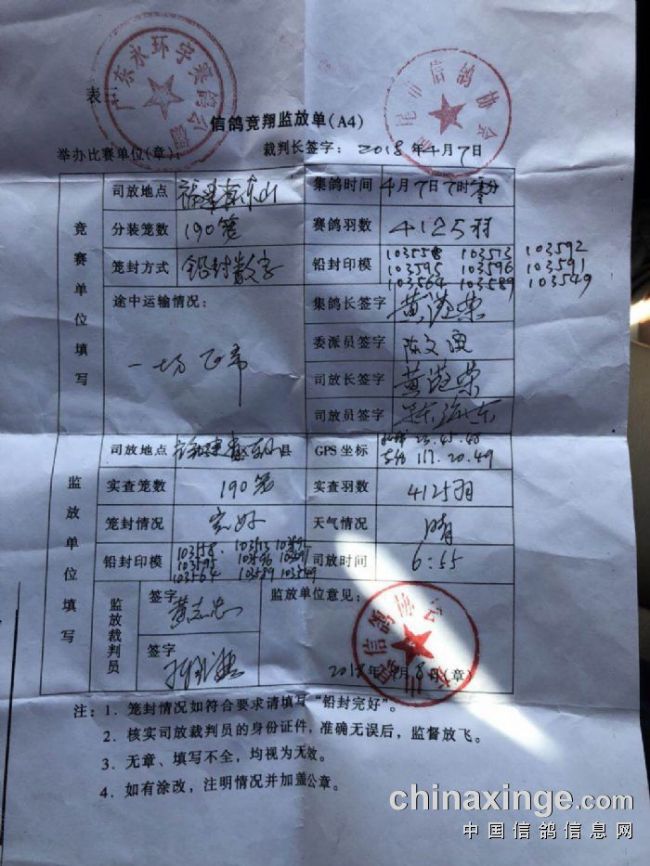 广东永环宇赛鸽公棚
信鸽协会
表:
信鸽竞翔监放单(A4)
举办比赛单位(章): 裁判长签字: 2018年4月7日
竞赛单位填写
司放地点 福建省东山 集鸽时间 4月7日7时
分装笼数 190笼 赛鸽羽数 4125羽
笼封方式 铅封数字 铅封印模 103558 103513 103592
103595 103596 103591
103564 103589 103549
途中运输情况: 一切正常
集鸽长签字 黄港荣
委派员签字
司放长签字 黄港荣
司放员签字
监放单位填写
司放地点 福建省东山县 GPS坐标 23.45.40
117.20.49
实查笼数 190笼 实查羽数 4125羽
笼封情况 完好 天气情况 晴
铅封印模 司放时间 6:55
103564 103589 103549
监放裁判员 签字 黄志忠
签字
监放单位意见:
信鸽协会
2018年4月8日(章)
注:1、笼封情况如符合要求请填写“铅封完好”。
2、核实司放裁判员的身份证件,准确无误后,监督放飞。
3、无章、填写不全,均视为无效。
4、如有涂改,注明情况并加盖公章。
chinaxinge.com
中国信鸽信息网